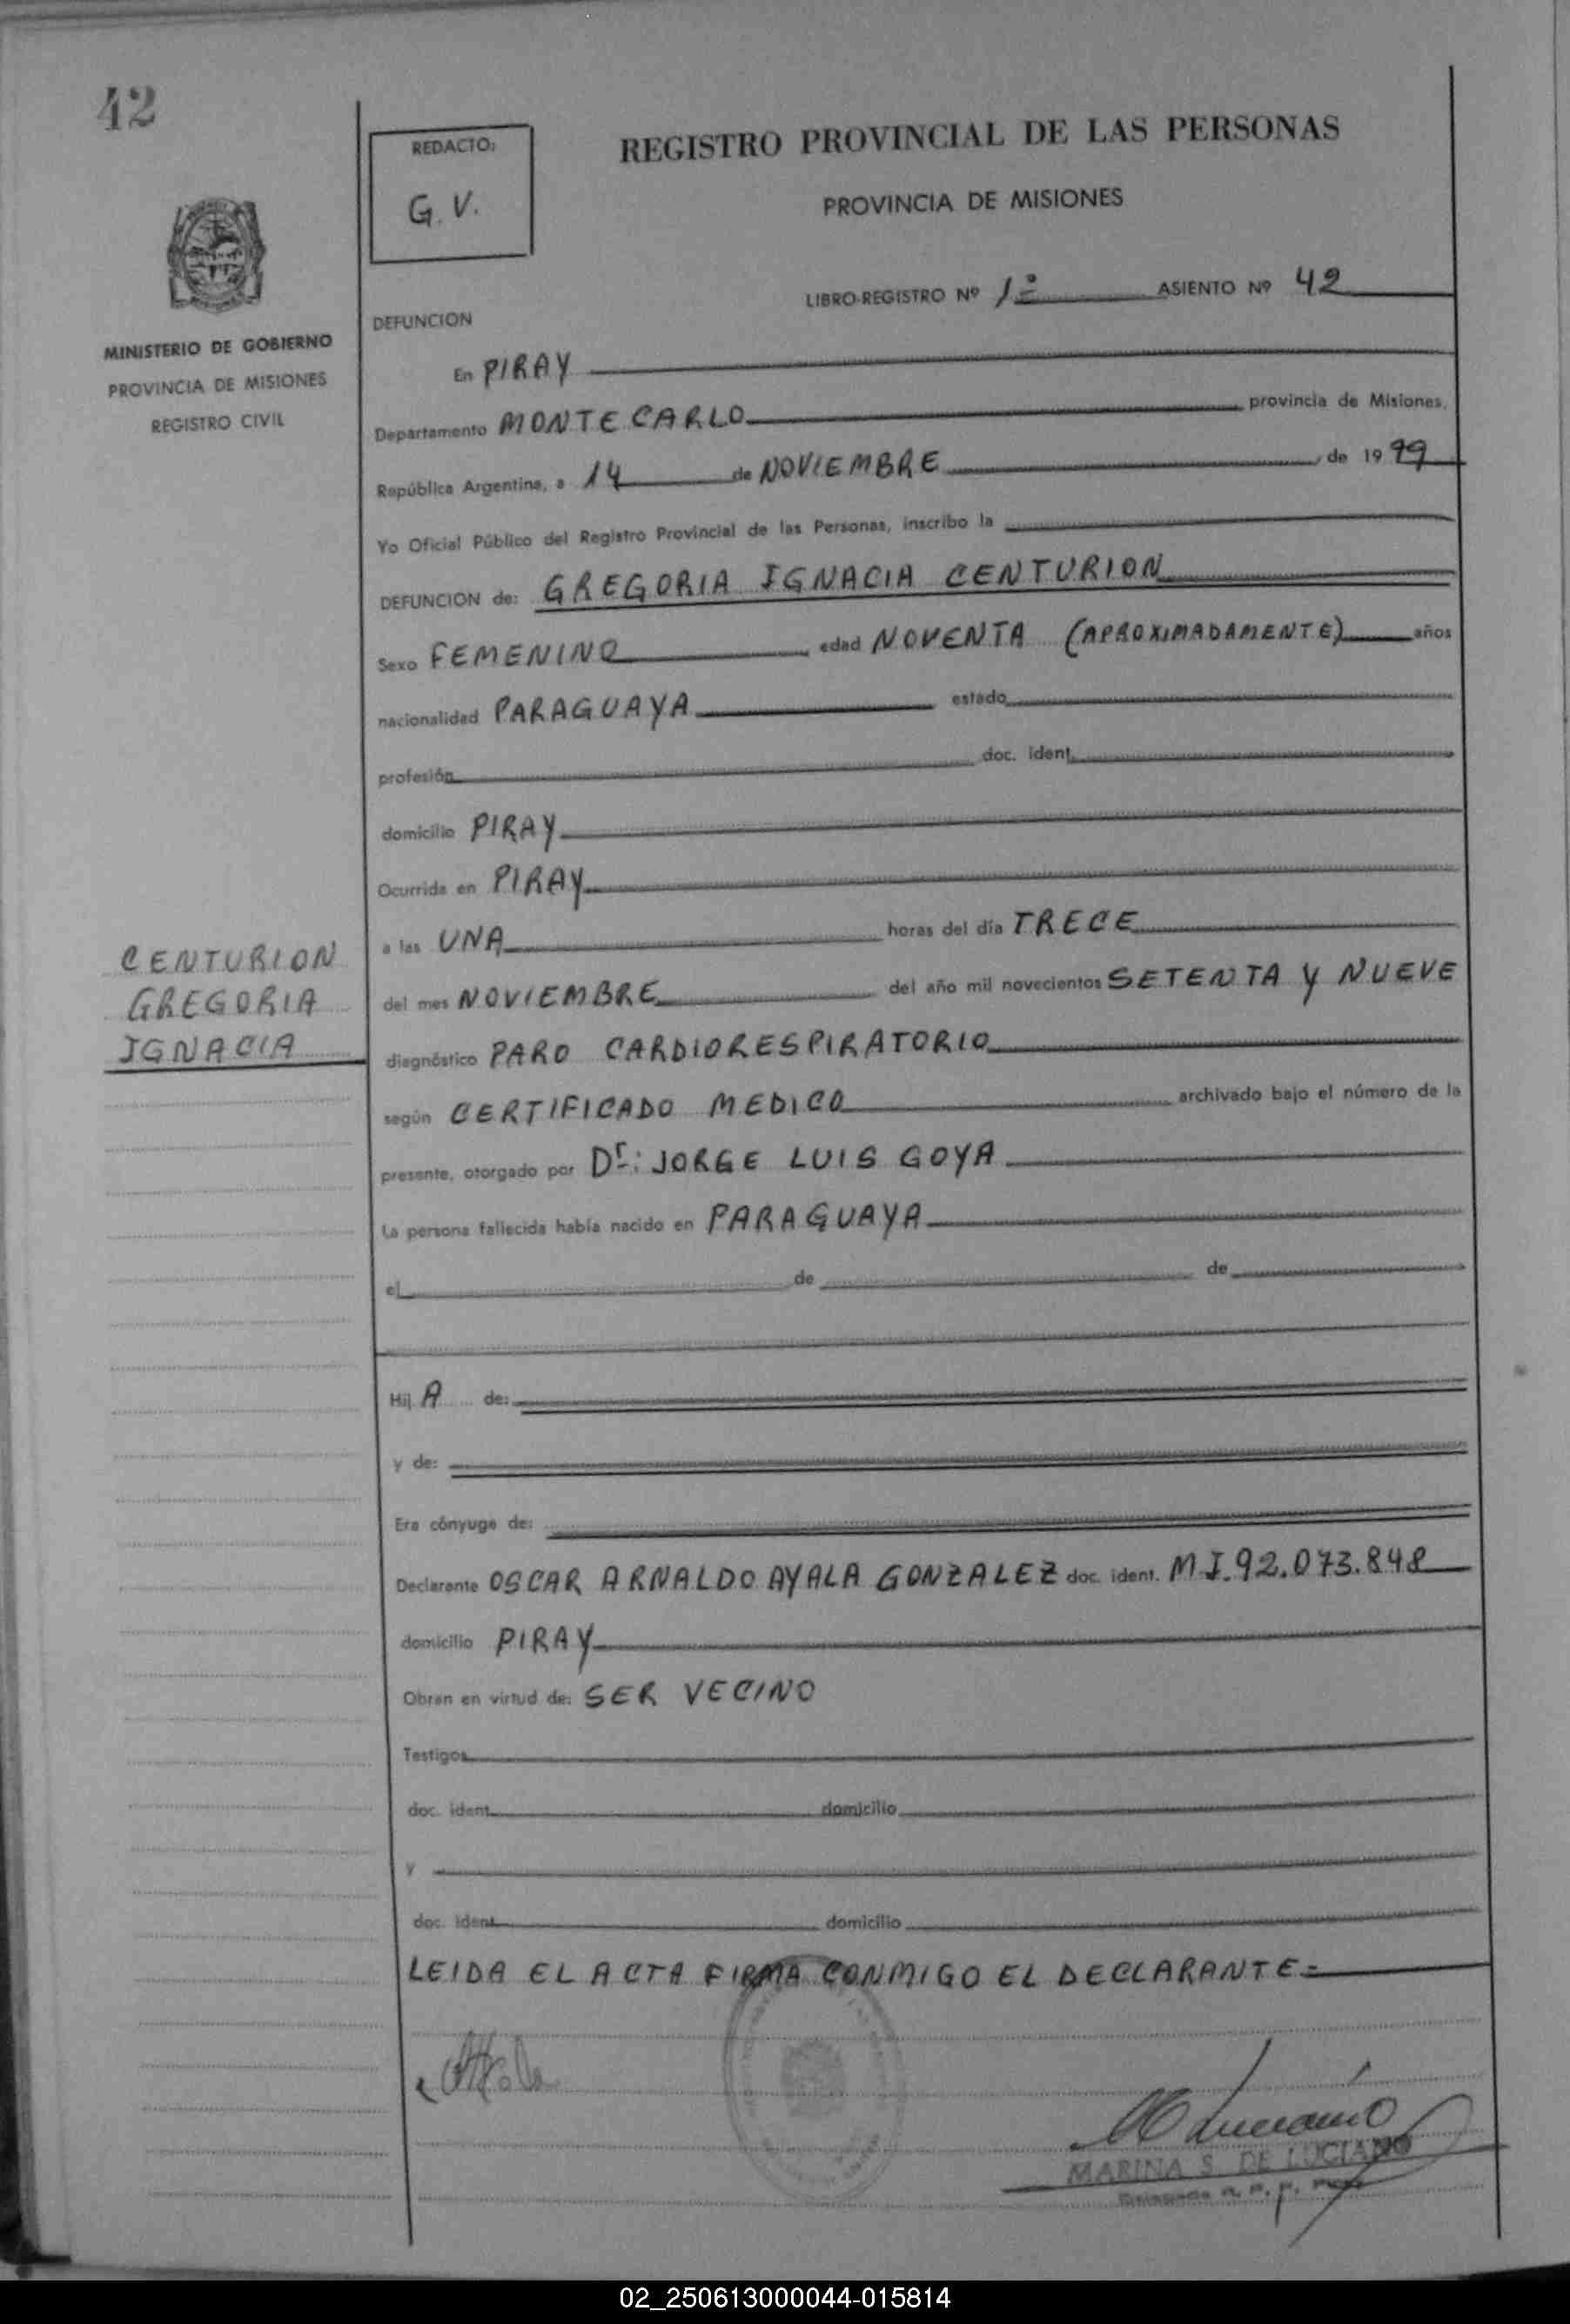 42
REDACTO:
G. V.
REGISTRO PROVINCIAL DE LAS PERSONAS
PROVINCIA DE MISIONES
MINISTERIO DE GOBIERNO
PROVINCIA DE MISIONES
REGISTRO CIVIL
LIBRO-REGISTRO Nº 1º ASIENTO Nº 42
DEFUNCION
En PIRAY
Departamento MONTECARLO provincia de Misiones,
República Argentina, a 14 de NOVIEMBRE de 1979
Yo Oficial Público del Registro Provincial de las Personas, inscribo la
DEFUNCION de: GREGORIA IGNACIA CENTURION
Sexo FEMENINO edad NOVENTA (APROXIMADAMENTE) años
nacionalidad PARAGUAYA estado
profesión doc. ident.
domicilio PIRAY
Ocurrida en PIRAY
a las UNA horas del día TRECE
del mes NOVIEMBRE del año mil novecientos SETENTA Y NUEVE
CENTURION
GREGORIA
IGNACIA
diagnóstico PARO CARDIORESPIRATORIO
según CERTIFICADO MEDICO archivado bajo el número de la
presente, otorgado por Dr: JORGE LUIS GOYA
La persona fallecida había nacido en PARAGUAYA
el de de
Hij A de:
y de:
Era cónyuge de:
Declarante OSCAR ARNALDO AYALA GONZALEZ doc. ident. M I. 92.073.848
domicilio PIRAY
Obran en virtud de: SER VECINO
Testigos
doc. ident. domicilio
y
doc. ident. domicilio
LEIDA EL ACTA FIRMA CONMIGO EL DECLARANTE=
MARINA S. DE LUCIANO
02_250613000044-015814